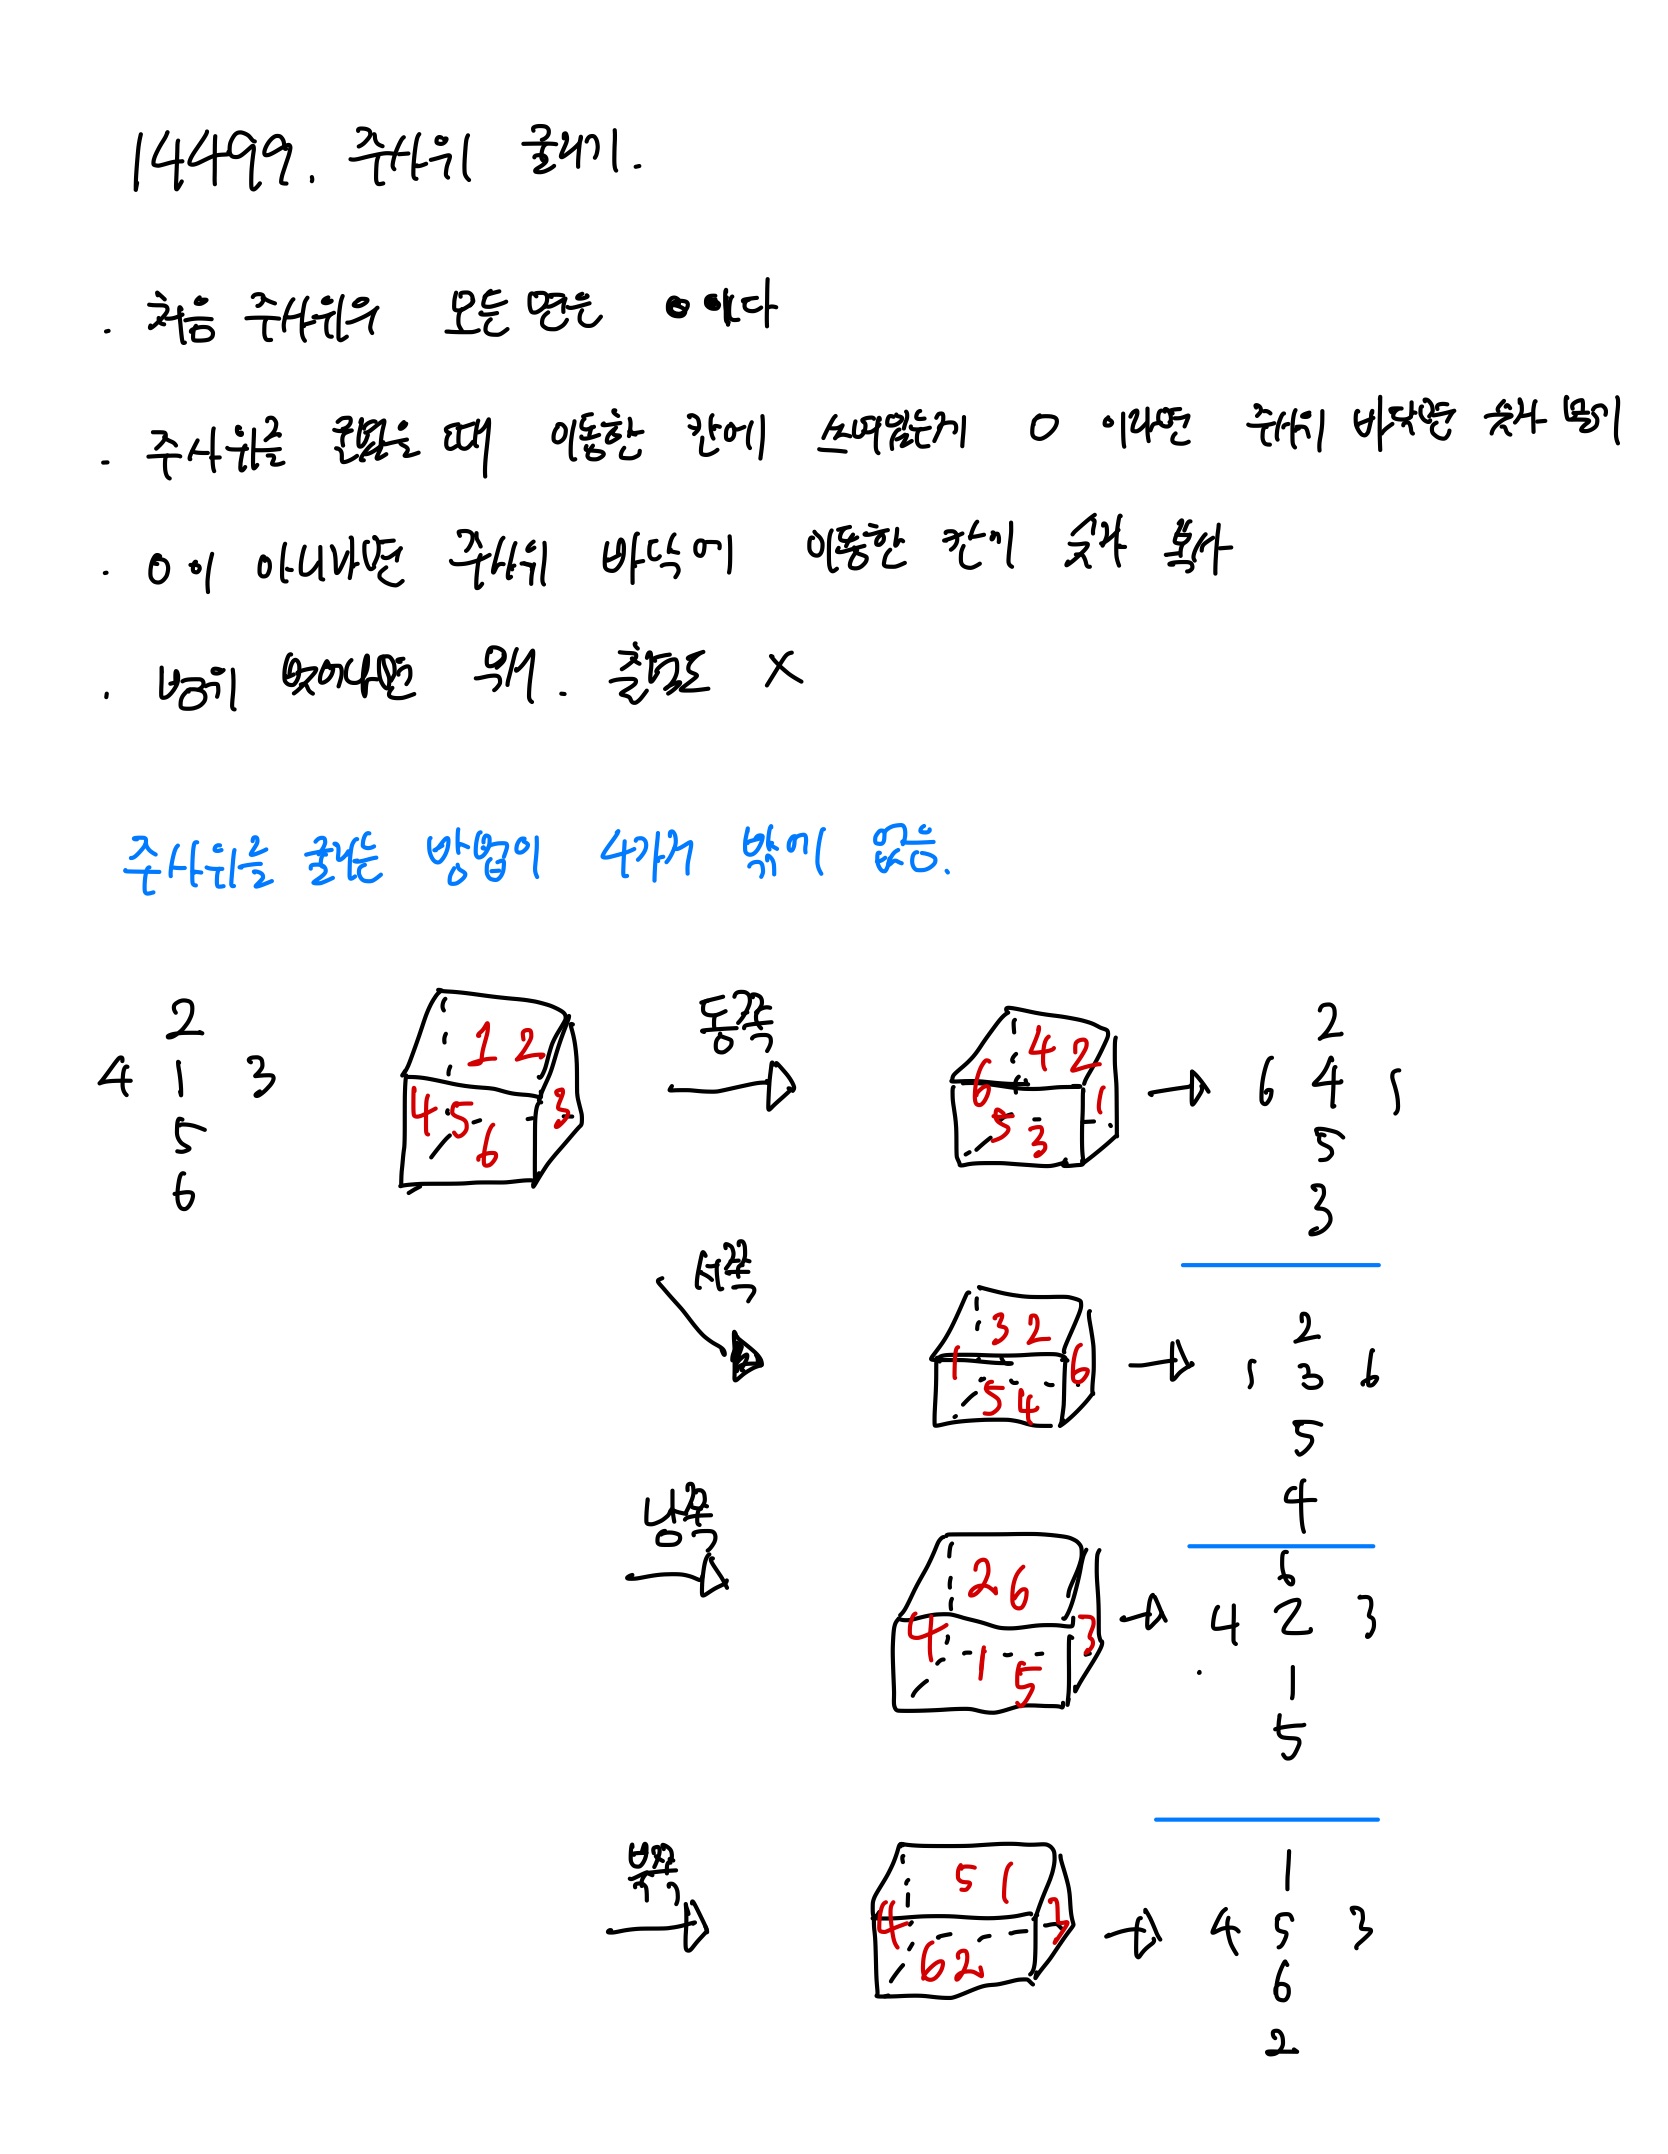 14499. 주사위 굴리기.
. 처음 주사위의 모든 면은 0이다
. 주사위를 굴렸을 때 이동한 칸에 쓰여있는게 0 이라면 주사위 바닥면 숫자
. 0이 아니라면 주사위 바닥에 이동한 칸에 숫자 복사
. 범위 벗어나면 무시. 출력도 X
주사위를 굴리는 방법이 4가지 밖에 없음.
2
4 1 3
5
6
1 2
4 5 3
6
동쪽
4 2
6 1
5 3
2
6 4 1
5
3
서쪽
3 2
1 6
5 4
2
1 3 6
5
4
남쪽
2 6
4 3
1 5
6
4 2 3
1
5
북쪽
5 1
4 3
6 2
1
4 5 3
6
2